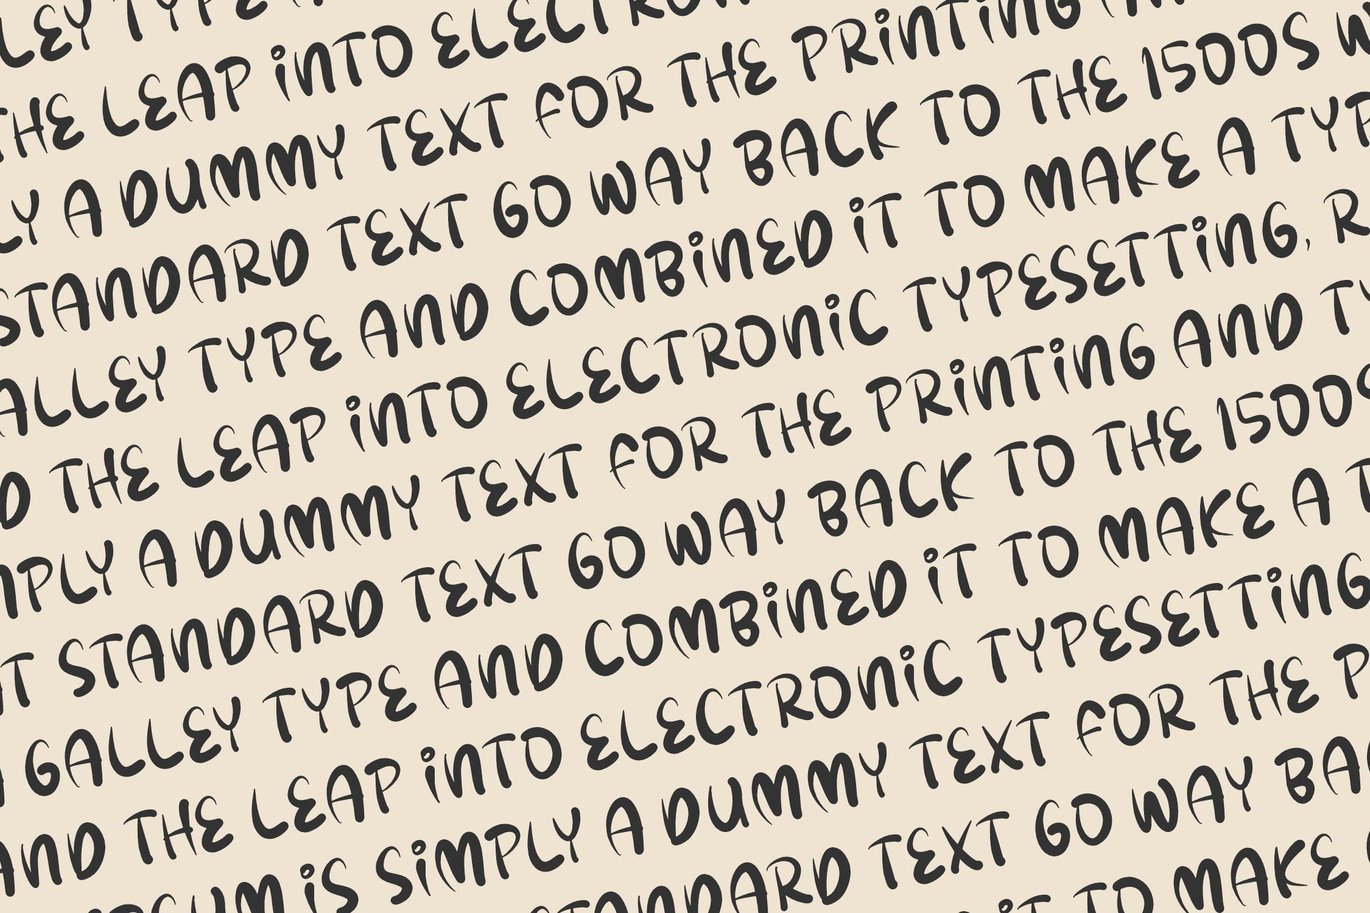 TYPE
THE LEAP iNTO
A DUMMY TEXT FOR THE PRiNTiNG
STANDARD TEXT GO WAY BACK TO THE 1500S
TYPE AND COMBiNED iT TO MAKE A
THE LEAP iNTO ELECTRONiC TYPESETTiNG,
A DUMMY TEXT FOR THE PRiNTiNG AND
STANDARD TEXT GO WAY BACK TO THE 1500S
GALLEY TYPE AND COMBiNED iT TO MAKE A
AND THE LEAP iNTO ELECTRONiC TYPESETTiNG
iS SiMPLY A DUMMY TEXT FOR THE
STANDARD TEXT GO WAY
TO MAKE